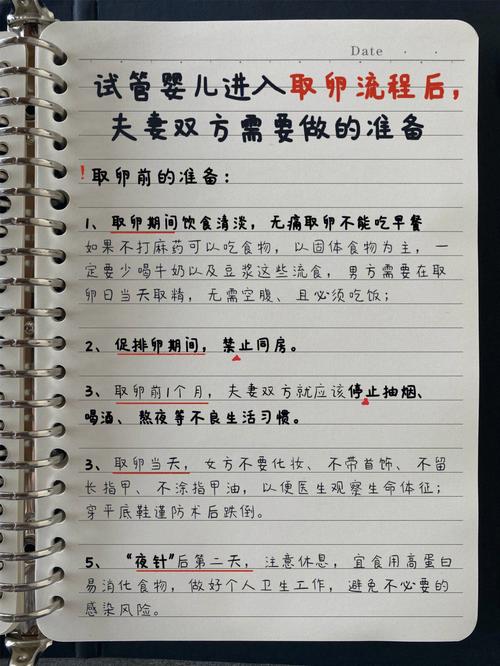 Date · ·
试管婴儿进入取卵流程后，
夫妻双方需要做的准备
！取卵前的准备：
1、取卵期间饮食清淡，无痛取卵不能吃早餐
如果不打麻药可以吃食物，以固体食物为主，一
定要少喝牛奶以及豆浆这些流食，男方需要在取
卵日当天取精，无需空腹、且必须吃饭；
2、促排卵期间，禁止同房。
3、取卵前1个月，夫妻双方就应该停止抽烟、
喝酒、熬夜等不良生活习惯。
3、取卵当天，女方不要化妆、不带首饰、不留
长指甲、不涂指甲油，以便医生观察生命体征；
穿平底鞋谨防术后跌倒。
5、“夜针”后第二天，注意休息，宜食用高蛋白
易消化食物，做好个人卫生工作，避免不必要的
感染风险。